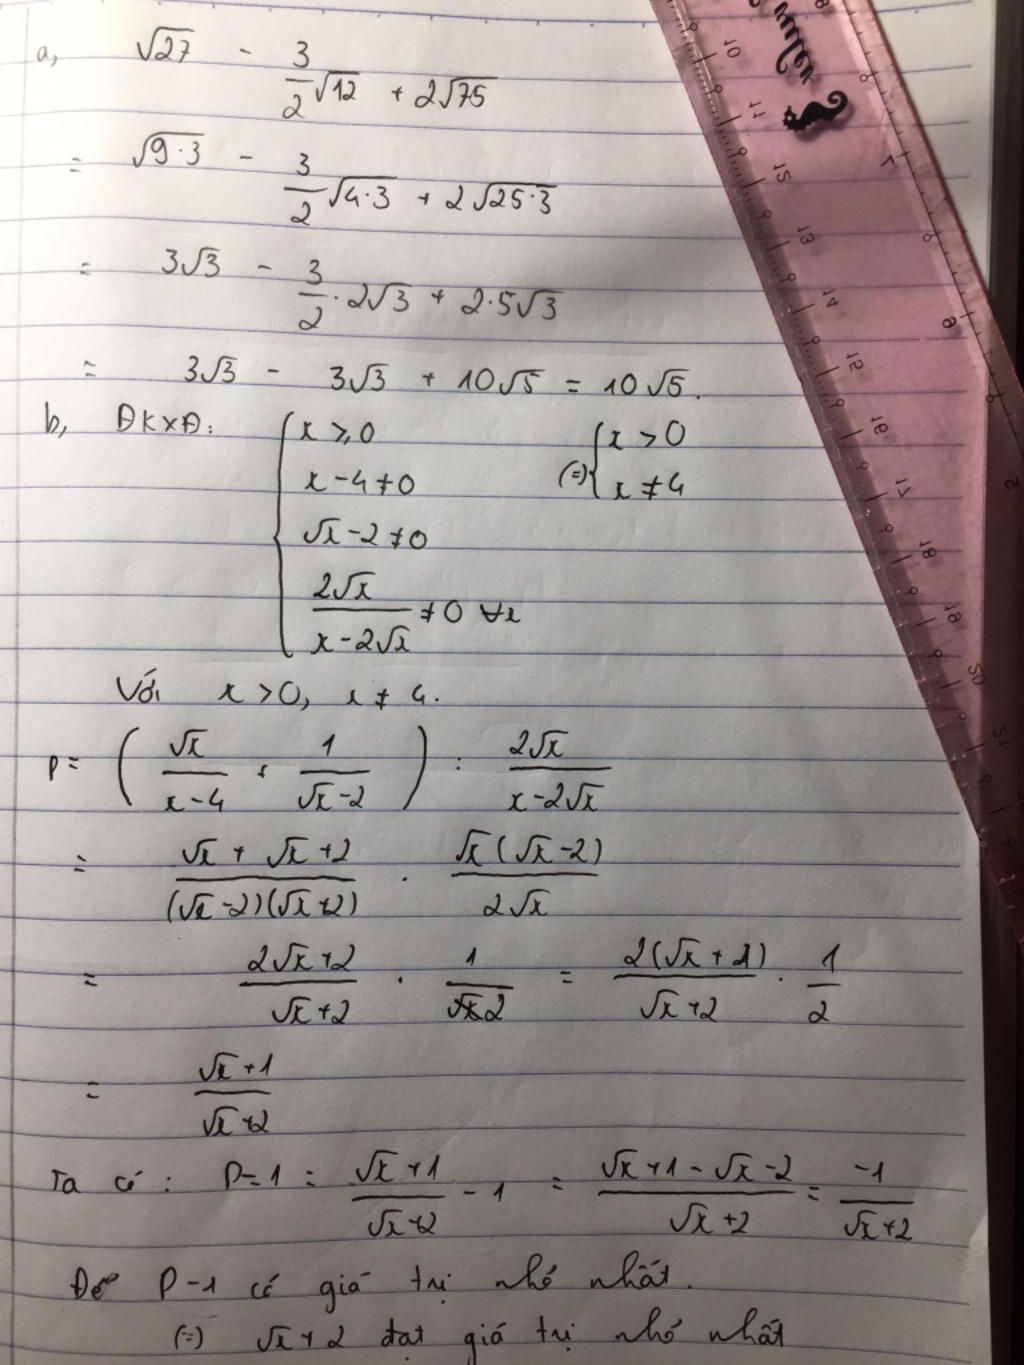 a, √27 - 3/2 √12 + 2√75
= √9·3 - 3/2 √4·3 + 2√25·3
= 3√3 - 3/2 · 2√3 + 2·5√3
= 3√3 - 3√3 + 10√5 = 10√5.
b, ĐKXĐ: { x ≥ 0 (=) { x > 0
x - 4 ≠ 0 x ≠ 4
√x - 2 ≠ 0
2√x / x - 2√x ≠ 0 ∀x
Với x > 0, x ≠ 4.
P = ( √x / x - 4 + 1 / √x - 2 ) : 2√x / x - 2√x
= √x + √x + 2 / (√x - 2)(√x + 2) · √x (√x - 2) / 2√x
= 2√x + 2 / √x + 2 · 1 / 2 = 2(√x + 1) / √x + 2 · 1 / 2
= √x + 1 / √x + 2
Ta có : P - 1 = √x + 1 / √x + 2 - 1 = √x + 1 - √x - 2 / √x + 2 = -1 / √x + 2
Để P - 1 có giá trị nhỏ nhất.
(=) √x + 2 đạt giá trị nhỏ nhất
10
11
12
13
14
15
16
17
18
19
20
21